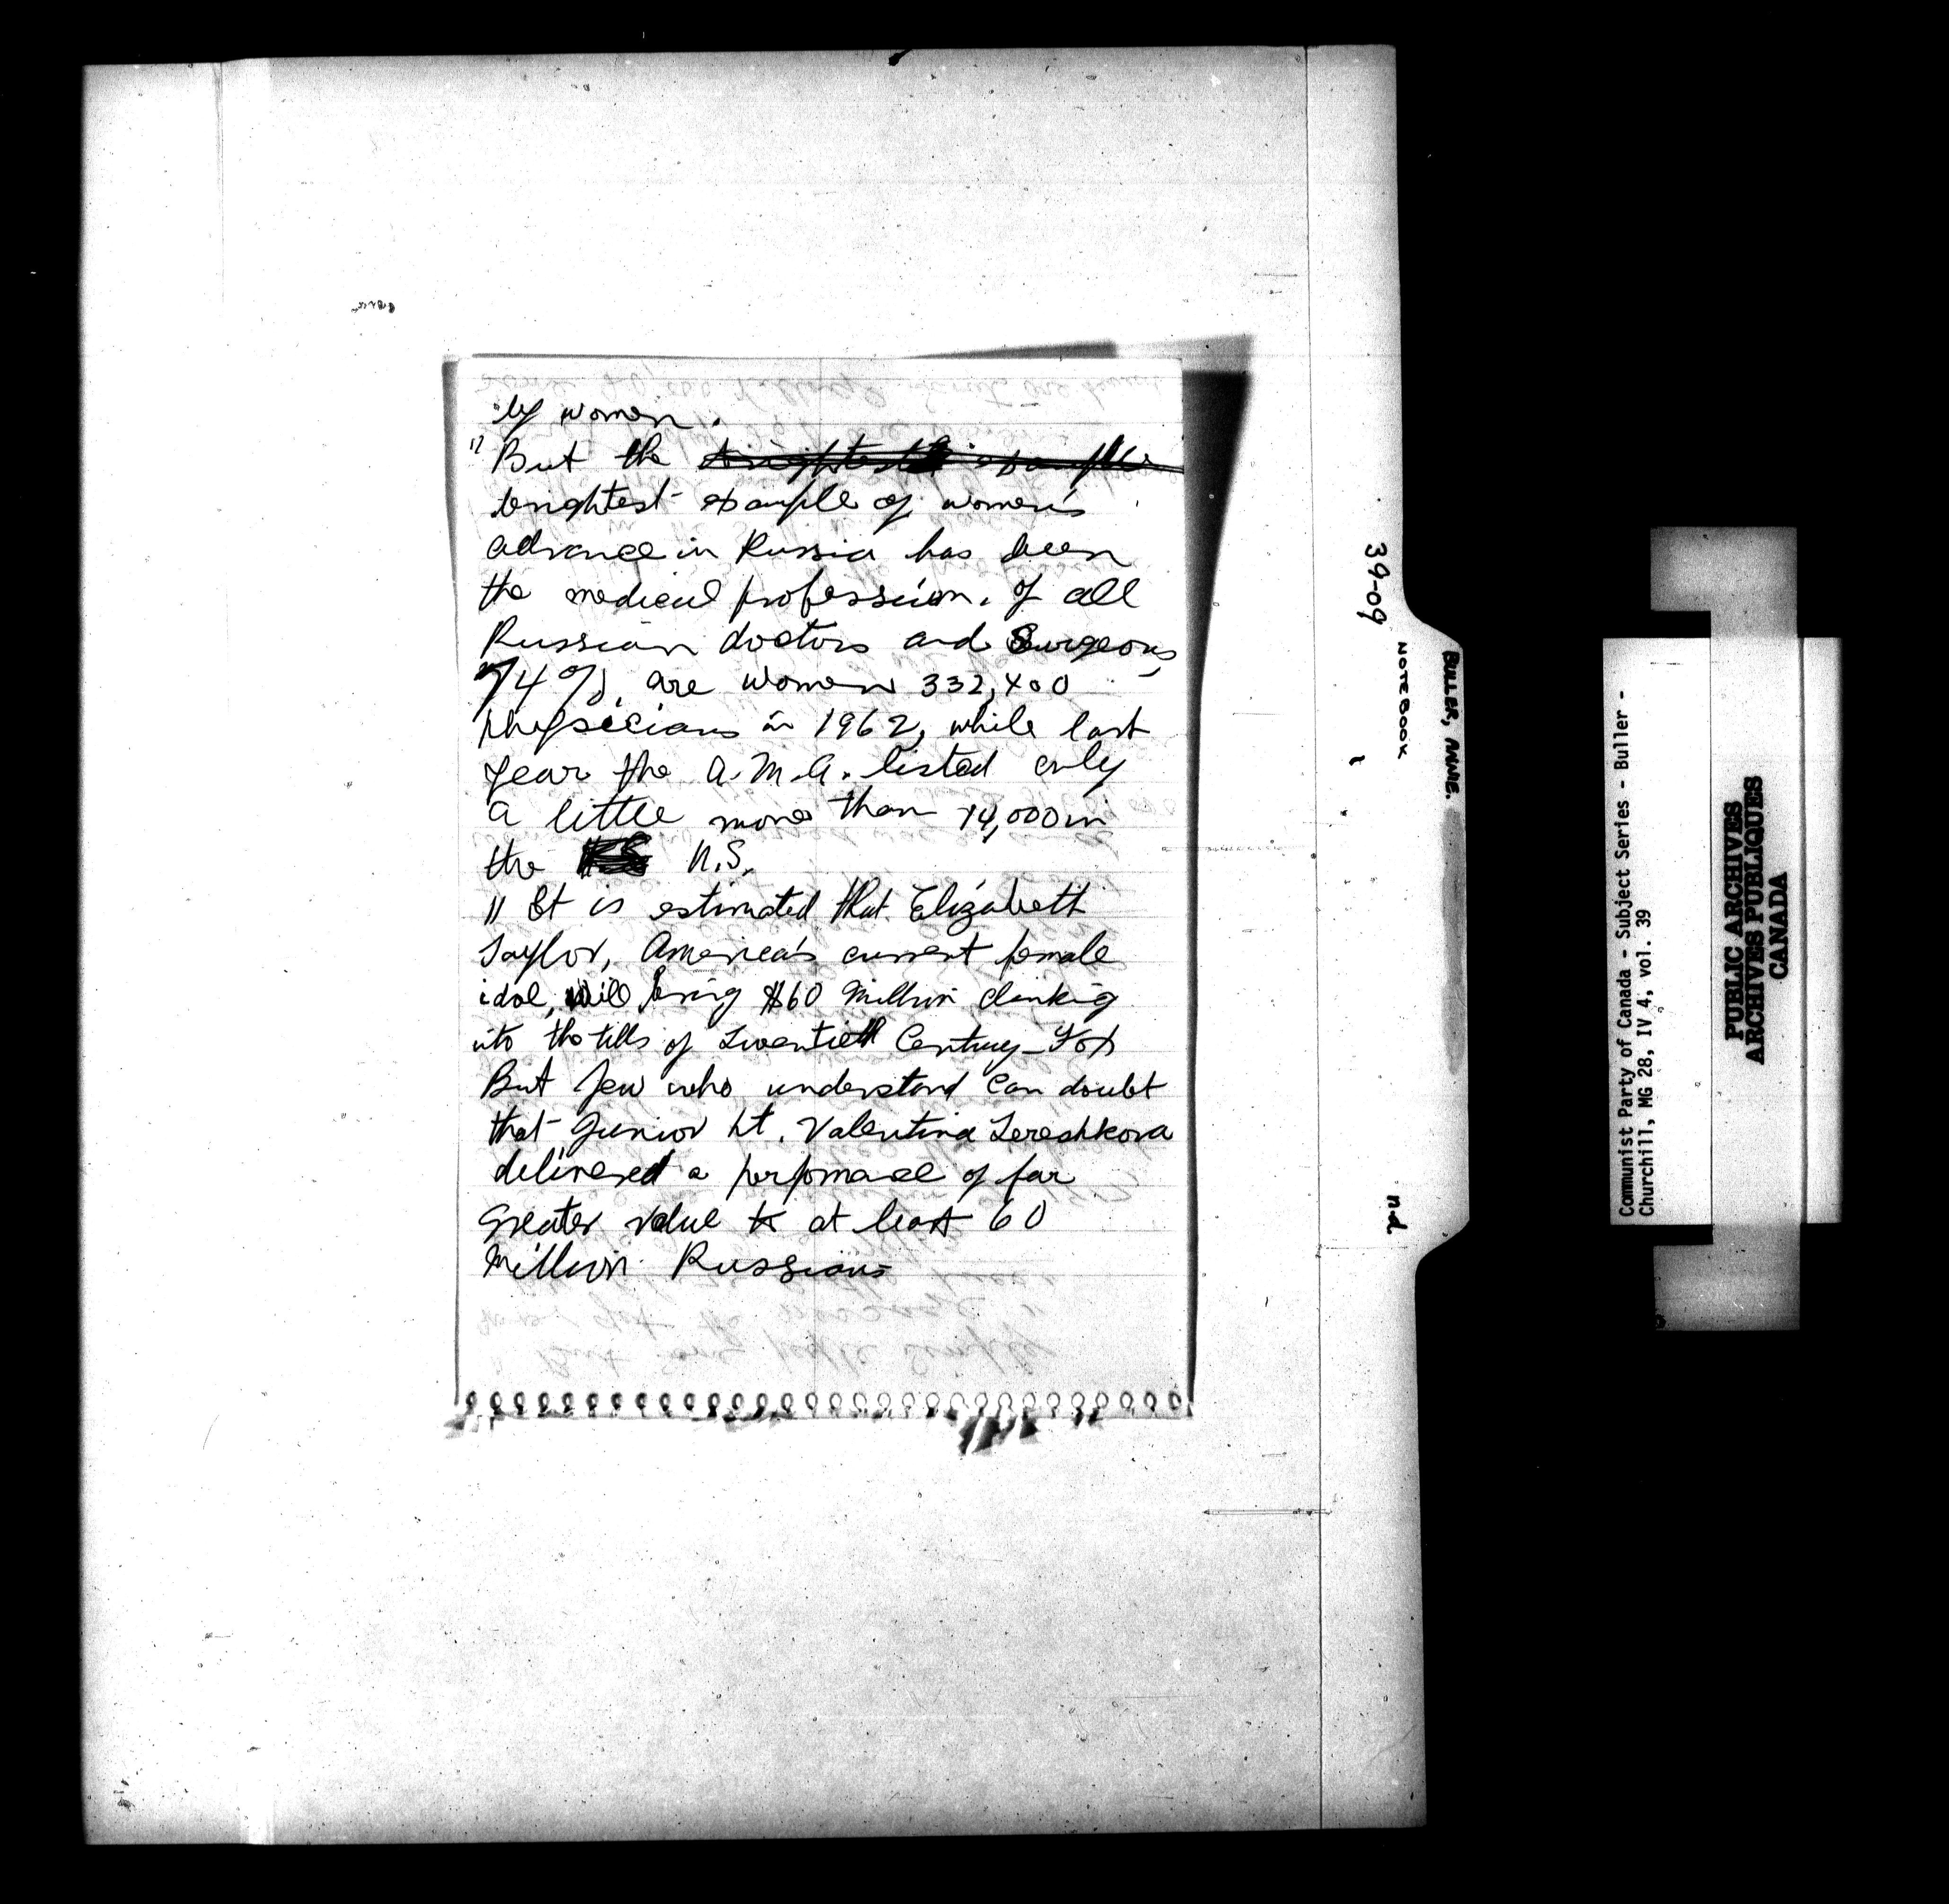 by women.
" But the brightest example
brightest example of women's
advance in Russia has been
the medical profession. Of all
Russian doctors and Surgeons,
74%, are women 332,400
physicians in 1962, while last
year the A.M.A. listed only
a little more than 14,000 in
the U.S.
" It is estimated that Elizabeth
Taylor, America's current female
idol, will bring $60 Million clinking
into the tills of Twentieth Century-Fox
But few who understand can doubt
that Junior Lt. Valentina Tereshkova
delivered a perfomance of far
Greater value to at least 60
Million Russians
39-09
NOTEBOOK
BULLER, ANNIE.
n.d.
Communist Party of Canada - Subject Series - Buller -
Churchill, MG 28, IV 4, vol. 39
PUBLIC ARCHIVES
ARCHIVES PUBLIQUES
CANADA